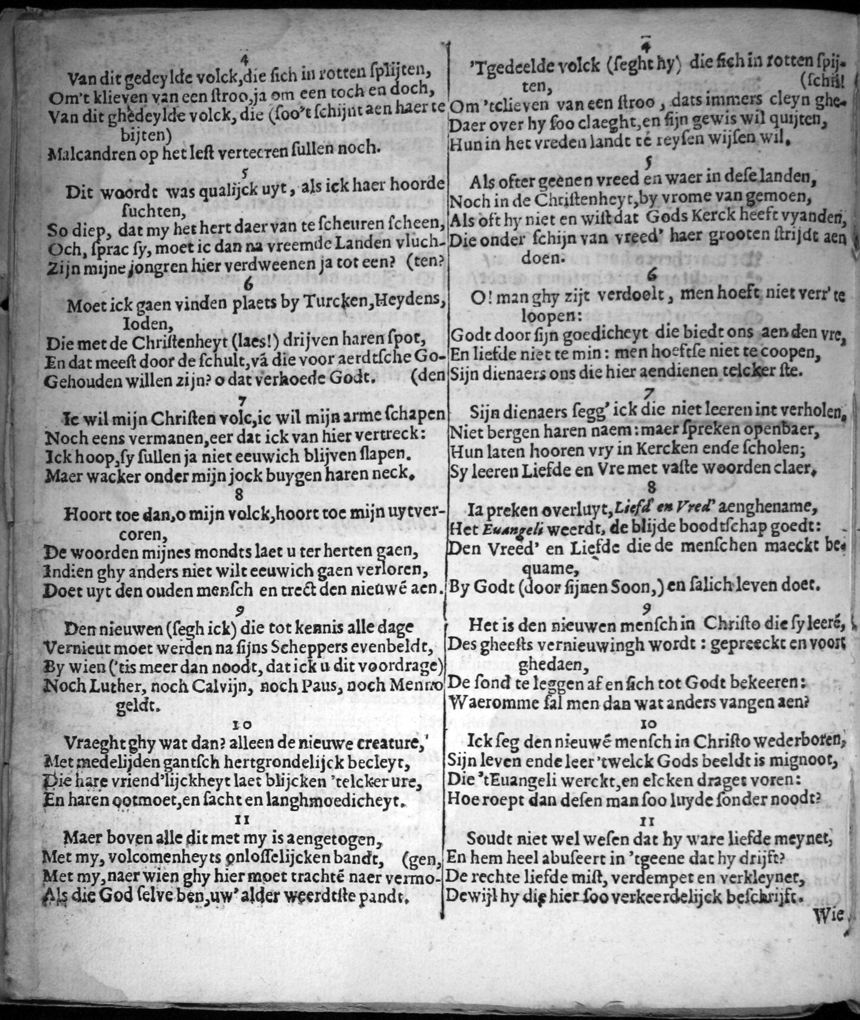 4
Van dit gedeylde volck,die ſich in rotten ſplijten,
Om't klieven van een ſtroo,ja om een toch en doch,
Van dit ghedeylde volck, die (ſoo't ſchijnt aen haer te
bijten)
Malcandren op het leſt verteeren ſullen noch.
5
Dit woordt was qualijck uyt, als ick haer hoorde
ſuchten,
So diep, dat my het hert daer van te ſcheuren ſcheen,
Och, ſprac ſy, moet ic dan na vreemde Landen vluch-
Zijn mijne jongren hier verdweenen ja tot een? (ten?
6
Moet ick gaen vinden plaets by Turcken,Heydens,
Ioden,
Die met de Chriſtenheyt (laes!) drijven haren ſpot,
En dat meeſt door de ſchult,vã die voor aerdtſche Go-
Gehouden willen zijn? o dat verhoede Godt. (den
7
Ic wil mijn Chriſten volc,ic wil mijn arme ſchapen
Noch eens vermanen,eer dat ick van hier vertreck:
Ick hoop,ſy ſullen ja niet eeuwich blijven ſlapen.
Maer wacker onder mijn jock buygen haren neck.
8
Hoort toe dan,o mijn volck,hoort toe mijn uytver-
coren,
De woorden mijnes mondts laet u ter herten gaen,
Indien ghy anders niet wilt eeuwich gaen verloren,
Doet uyt den ouden menſch en treckt den nieuwẽ aen.
9
Den nieuwen (ſegh ick) die tot kennis alle dage
Vernieut moet werden na ſijns Scheppers evenbeldt,
By wien ('tis meer dan noodt, dat ick u dit voordrage)
Noch Luther, noch Calvijn, noch Paus, noch Menno
geldt.
10
Vraeght ghy wat dan? alleen de nieuwe creature,
Met medelijden gantſch hertgrondelijck becleyt,
Die hare vriend'lijckheyt laet blijcken 'telcker ure,
En haren ootmoet,en ſacht en langhmoedicheyt.
11
Maer boven alle dit met my is aengetogen,
Met my, volcomenheyts onloſſelijcken bandt, (gen,
Met my,naer wien ghy hier moet trachtẽ naer vermo-
Als die God ſelve ben,uw' alder weerdtſte pandt.
4
'Tgedeelde volck (ſeght hy) die ſich in rotten ſpij-
ten, (ſchil!
Om 'tclieven van een ſtroo, dats immers cleyn ghe-
Daer over hy ſoo claeght,en ſijn gewis wil quijten,
Hun in het vreden landt te reyſen wijſen wil.
5
Als ofter geenen vreed en waer in deſe landen,
Noch in de Chriſtenheyt,by vrome van gemoen,
Als oft hy niet en wiſt dat Gods Kerck heeft vyanden,
Die onder ſchijn van vreed' haer grooten ſtrijdt aen
doen.
6
O! man ghy zijt verdoelt, men hoeft niet verr' te
loopen:
Godt door ſijn goedicheyt die biedt ons aen den vre,
En liefde niet te min: men hoeftſe niet te coopen,
Sijn dienaers ons die hier aendienen telcker ſte.
7
Sijn dienaers ſegg' ick die niet leeren int verholen,
Niet bergen haren naem: maer ſpreken openbaer,
Hun laten hooren vry in Kercken ende ſcholen;
Sy leeren Liefde en Vre met vaſte woorden claer,
8
Ia preken overluyt, Liefd' en Vred' aenghename,
Het Euangeli weerdt, de blijde boodtſchap goedt:
Den Vreed' en Liefde die de menſchen maeckt be-
quame,
By Godt (door ſijnen Soon,) en ſalich leven doet.
9
Het is den nieuwen menſch in Chriſto die ſy leerẽ,
Des gheeſts vernieuwingh wordt : gepreeckt en voort
ghedaen,
De ſond te leggen af en ſich tot Godt bekeeren:
Waeromme ſal men dan wat anders vangen aen?
10
Ick ſeg den nieuwẽ menſch in Chriſto wederboren,
Sijn leven ende leer 'twelck Gods beeldt is mignoot,
Die 'tEuangeli werckt,en elcken draget voren:
Hoe roept dan deſen man ſoo luyde ſonder noodt?
11
Soudt niet wel weſen dat hy ware liefde meynet,
En hem heel abuſeert in 'tgeene dat hy drijft?
De rechte liefde miſt, verdempet en verkleynet,
Dewijl hy die hier ſoo verkeerdelijck beſchrijft.
Wie